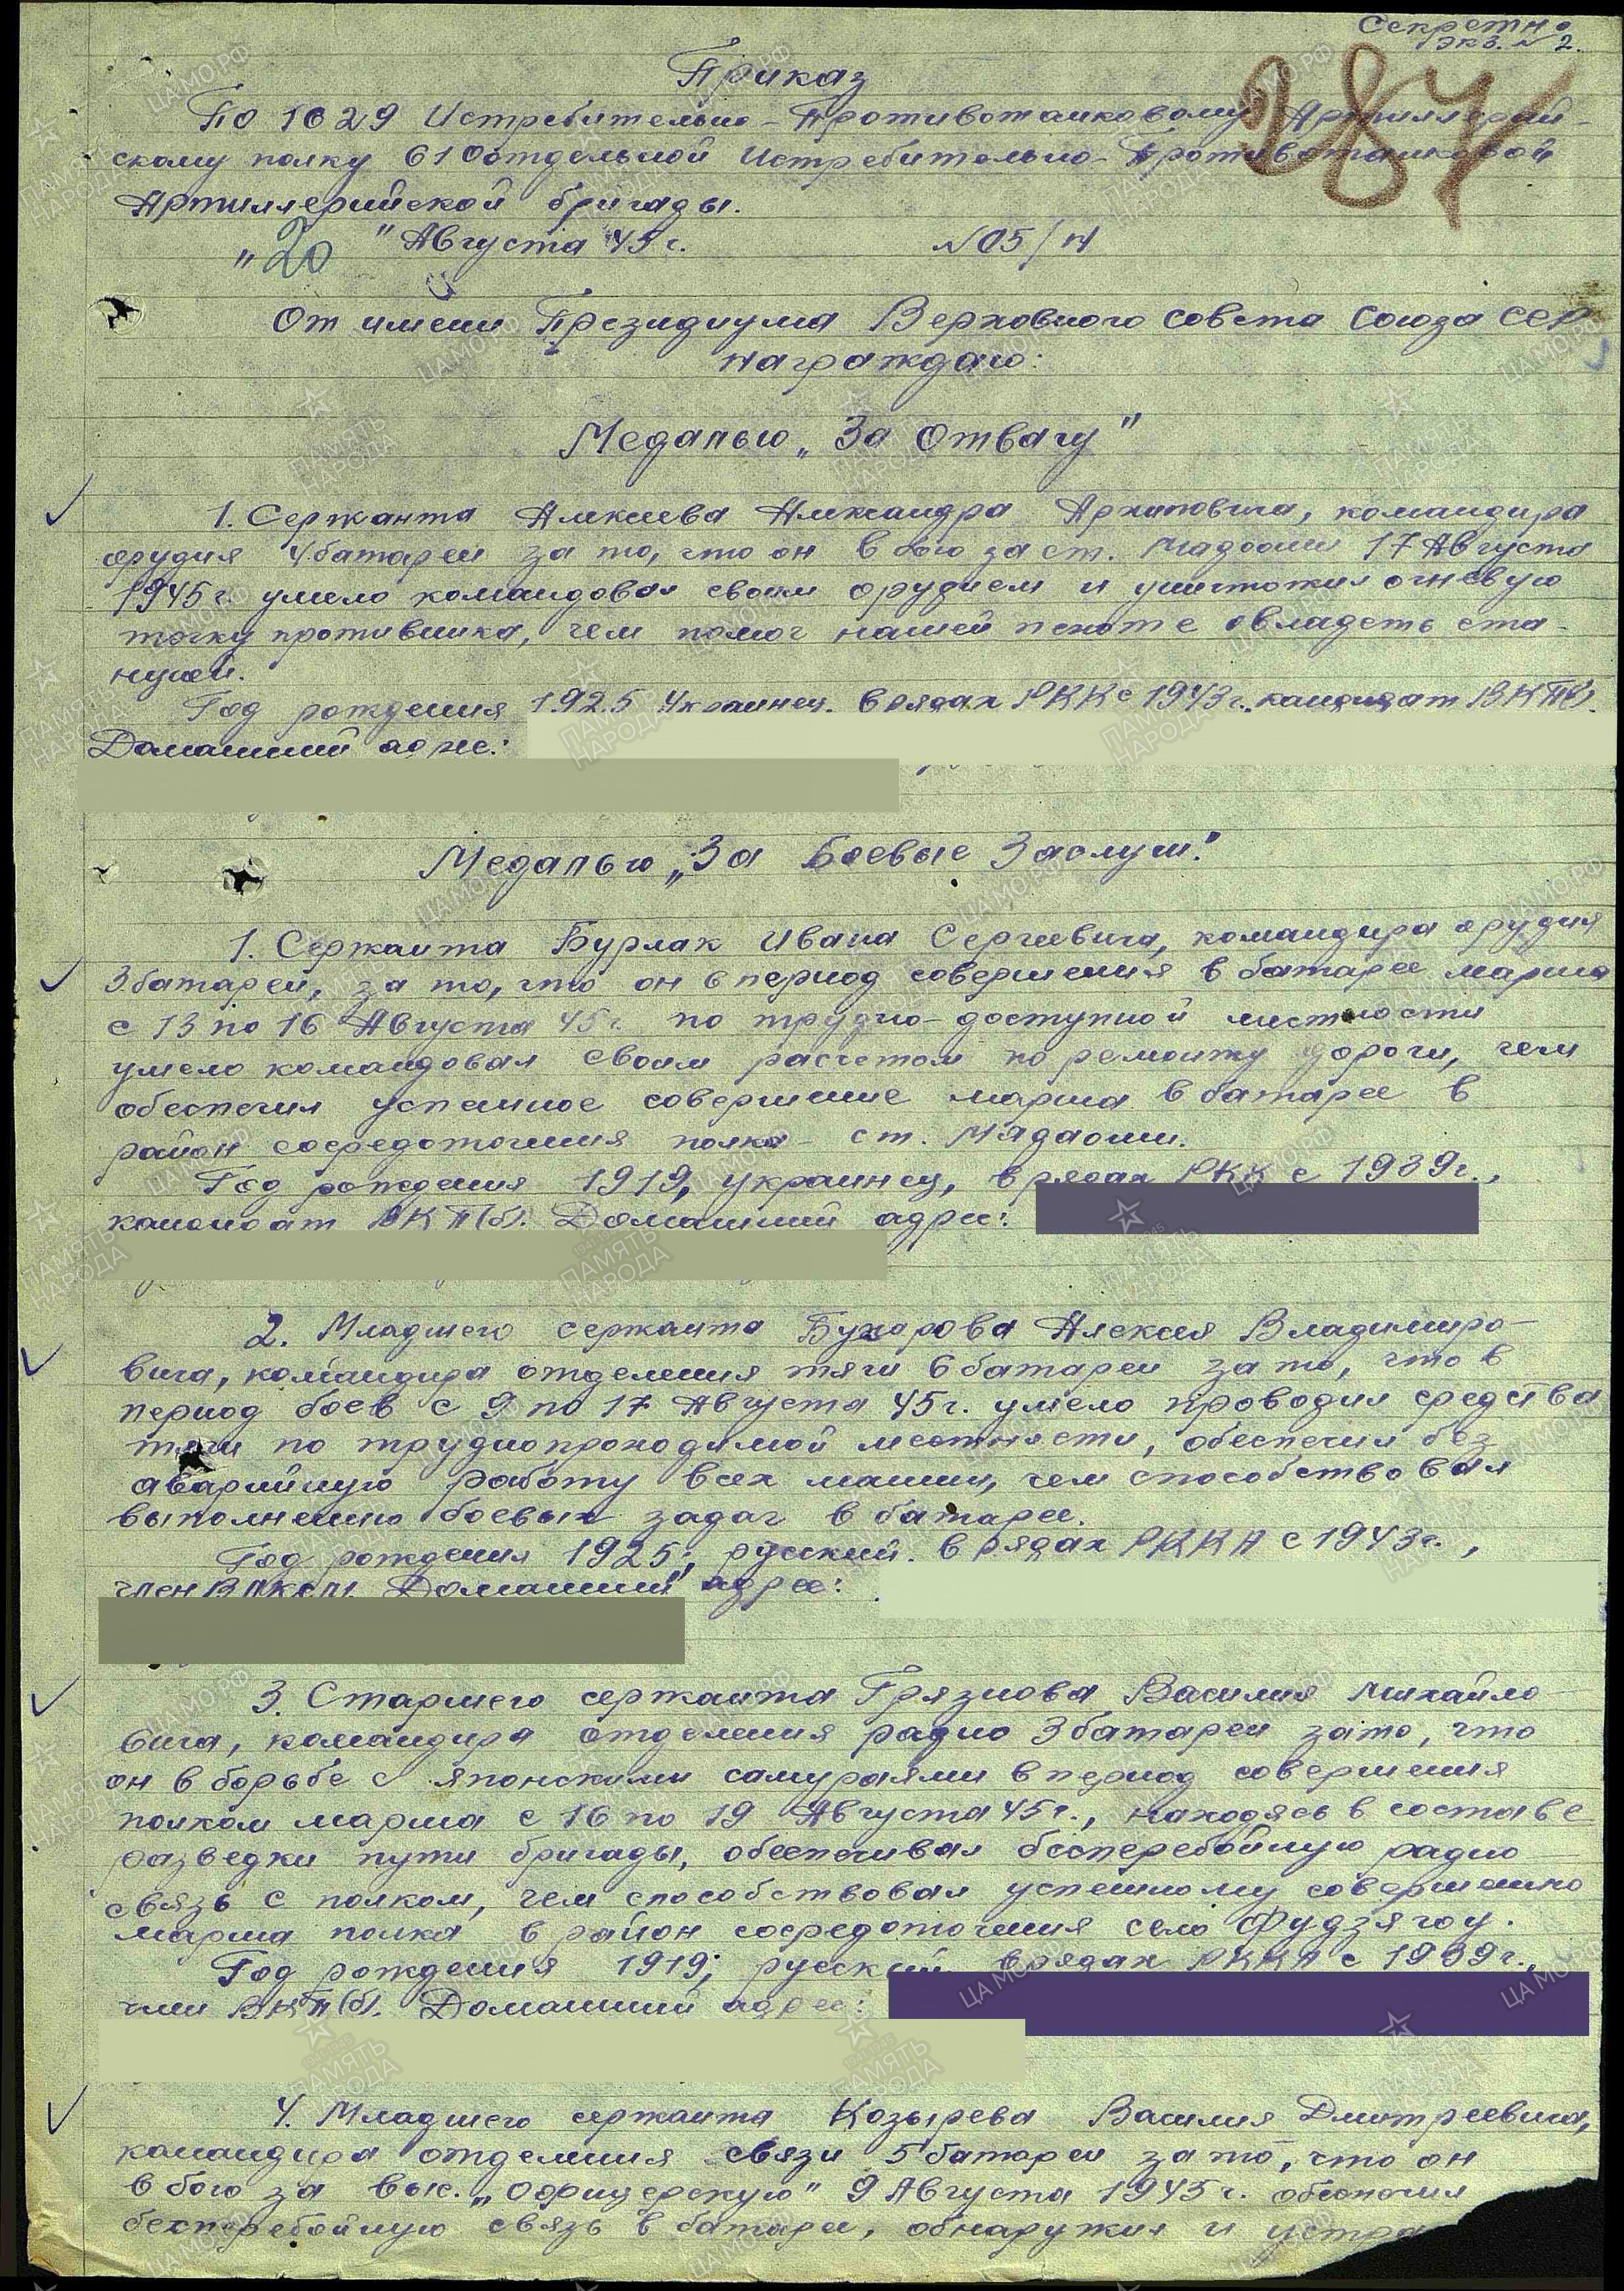 Секретно
экз. № 2.
287
Приказ
По 1629 Истребительно-Противотанковому Артиллерий-
скому полку 61 отдельной Истребительно-Противотанковой
Артиллерийской бригады.
"20" Августа 45 г. № 05/н
От имени Президиума Верховного Совета Союза ССР
награждаю:
Медалью „За Отвагу"
1. Сержанта Алексеева Александра Архиповича, командира
орудия 4 батареи за то, что он в бою за ст. 17 Августа
1945 г. умело командовал своим орудием и уничтожил огневую
точку противника, чем помог нашей пехоте овладеть ста-
нцией.
Год рождения 1925 Украинец. В рядах РККА с 1943 г., кандидат ВКП(б).
Домашний адрес:
Медалью „За Боевые Заслуги."
1. Сержанта Бурлак Ивана Сергеевича, командира орудия
3 батареи, за то, что он в период совершения в батарее марша
с 13 по 16 Августа 45 г. по трудно-доступной местности
умело командовал своим расчетом по ремонту дороги, чем
обеспечил успешное совершение марша в батарее в
район сосредоточения полка - ст. Мадаоши.
Год рождения 1919, украинец, в рядах РКК с 1939 г.,
кандидат ВКП(б). Домашний адрес:
2. Младшего сержанта Бухарова Алексея Владимиро-
вича, командира отделения тяги 6 батареи за то, что в
период боев с 9 по 17 Августа 45 г. умело проводил средства
тяги по труднопроходимой местности, обеспечил без
аварийную работу всех машин, чем способствовал
выполнению боевых задач в батарее.
Год рождения 1925, русский. В рядах РККА с 1943 г.,
член ВЛКСМ. Домашний адрес:
3. Старшего сержанта Грязнова Василия Михайло-
вича, командира отделения радио 3 батареи за то, что
он в борьбе с японскими самураями в период совершения
полком марша с 16 по 19 Августа 45 г., находясь в составе
разведки пути бригады, обеспечивал бесперебойную радио
связь с полком, чем способствовал успешному совершению
марша полка в район сосредоточения село Фудзягоу.
Год рождения 1919, русский, в рядах РККА с 1939 г.,
член ВКП(б). Домашний адрес:
4. Младшего сержанта Козырева Василия Дмитреевича,
командира отделения связи 5 батареи за то, что он
в бою за выс. „Офицерскую" 9 Августа 1945 г. обеспечил
бесперебойную связь в батарее, обнаружил и устра